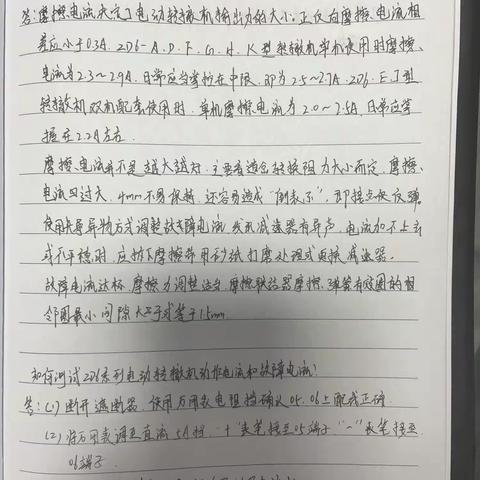 答:摩擦电流决定了电动转辙机输出力的大小,正反向摩擦电流相
差应小于0.3A. ZD6-A.D.F.G.H.K型转辙机单机使用时摩擦
电流为2.3~2.9A.日常应掌控在中限,即为2.5~2.7A.ZD6.E.J型
转辙机双机配套使用时,单机摩擦电流为2.0~2.5A,日常应掌
握在2.2A左右.
摩擦电流并不是越大越好.主要看道岔转换阻力大小而定,摩擦
电流过大,4mm不易保持,还容易造成“倒表示”,即接点快反弹
使用夹导异物方式调整故障电流,或减速器有异声,电流加不上去
或不平稳时,应拆下摩擦带用砂纸打磨处理或更换减速器.
故障电流达标,摩擦力调整适当,摩擦联结器摩擦,弹簧有效圈的相
邻圈最小间隙大于或等于1.5mm.
如何测试ZD6系列电动转辙机动作电流和故障电流?
答:(1)断开遮断器,使用万用表电阻挡确认05.06上配线正确
(2)将万用表调至直流5A挡,“+”表笔接至05端子“-”表笔接至
06端子.